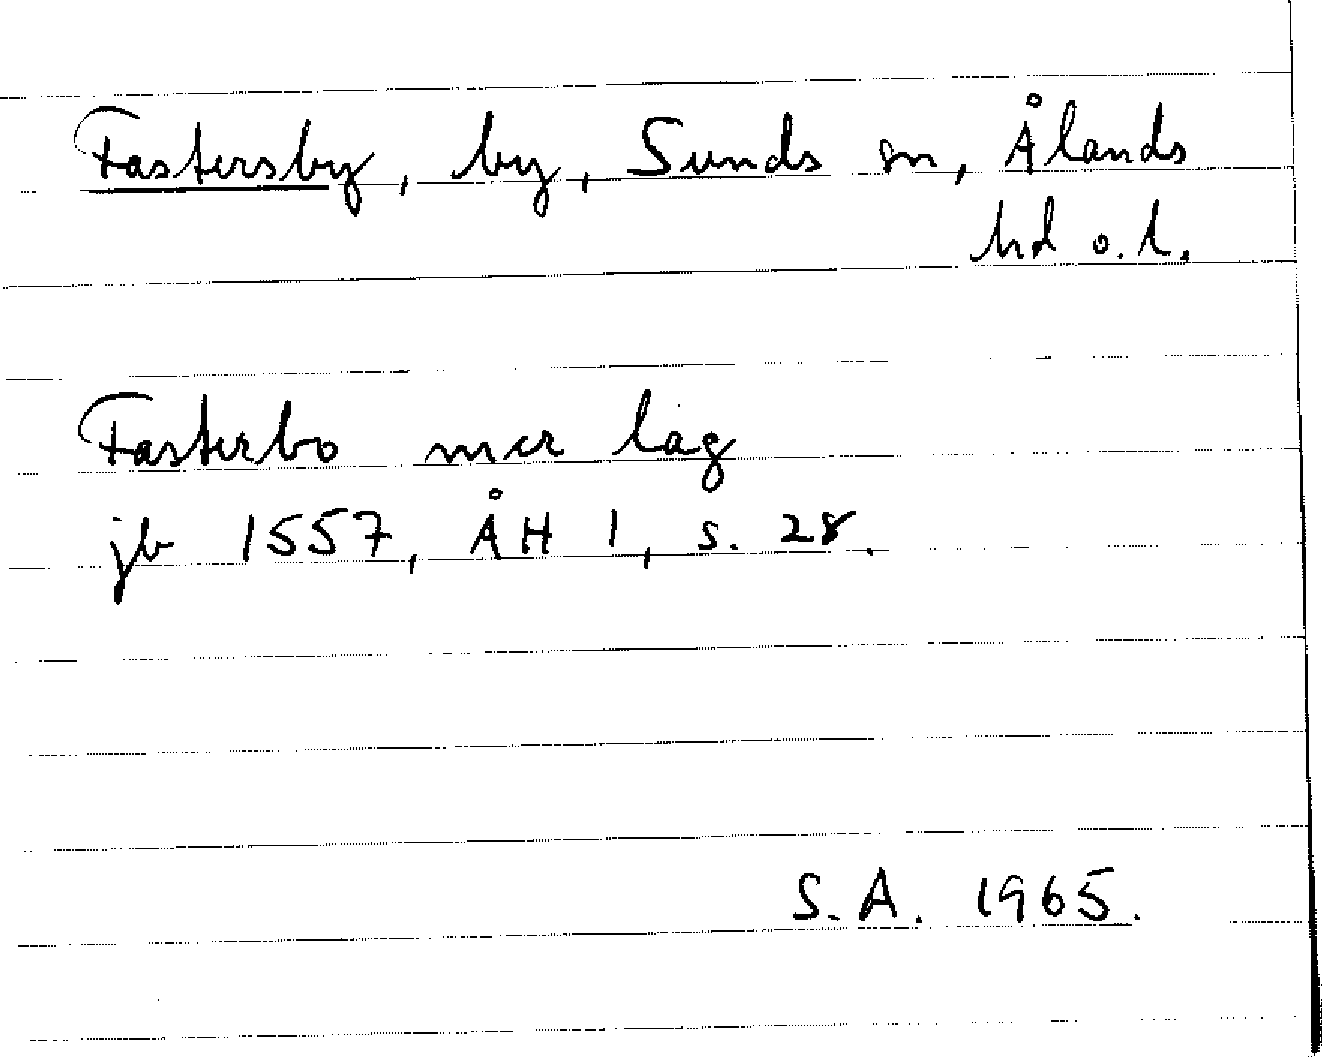 Fastersby, by, Sunds sn, Ålands
hd o. l.
Fasterbo mcr lag
jb 1557, ÅH 1, s. 28.
S. A. 1965.